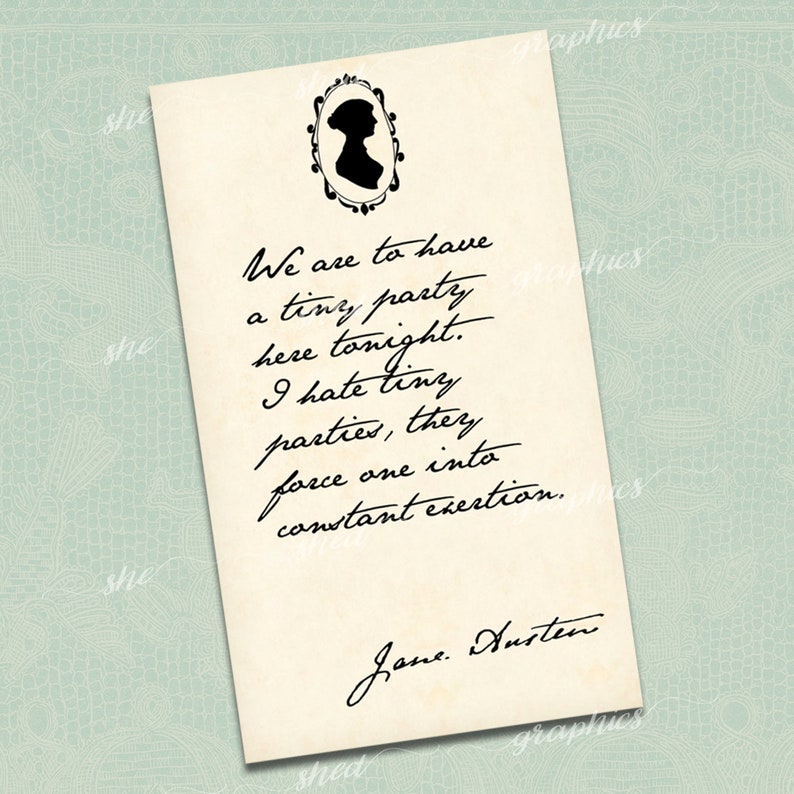 We are to have
a tiny party
here tonight.
I hate tiny
parties, they
force one into
constant exertion.
Jane. Austen
she
shed
graphics
she
graphics
shed
graphics
she
shed
graphics